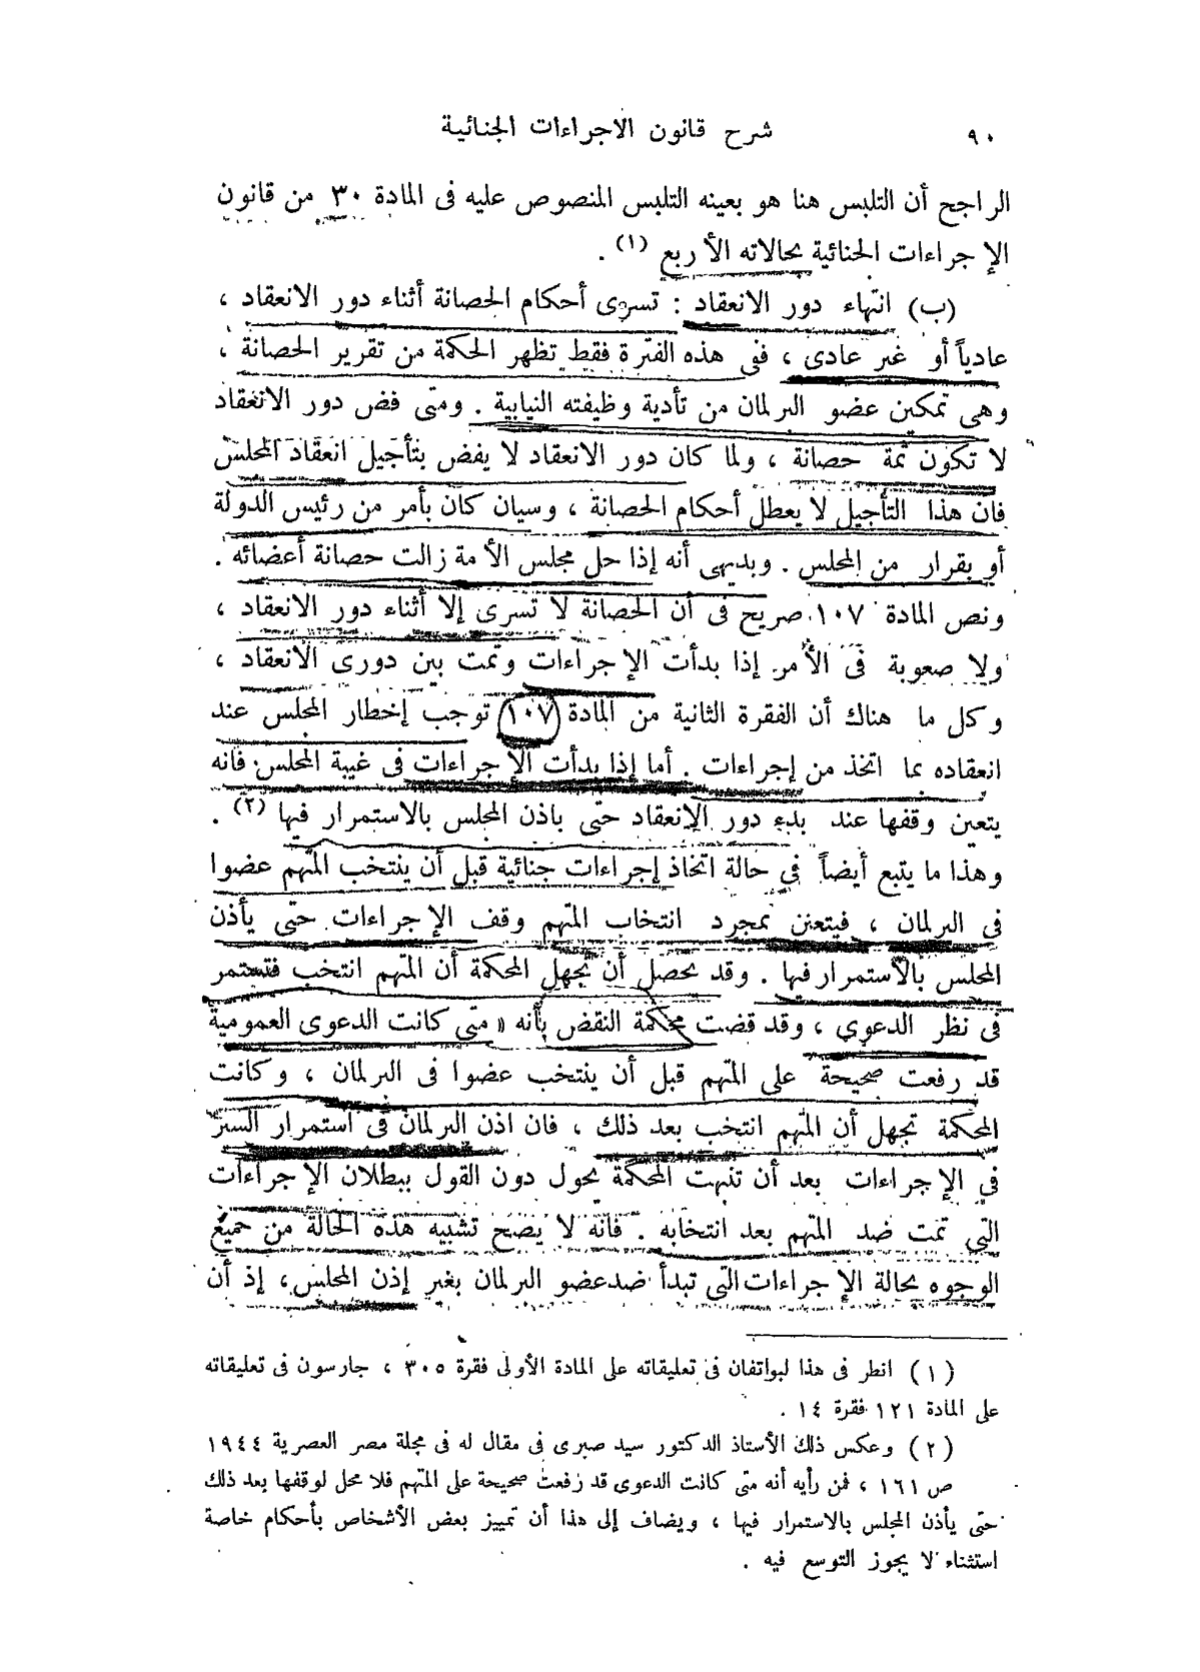 ٩٠
شرح قانون الاجراءات الجنائية
الراجح أن التلبس هنا هو بعينه التلبس المنصوص عليه فى المادة ٣٠ من قانون
الإجراءات الجنائية بحالاته الأربع (١) .
(ب) انتهاء دور الانعقاد : تسرى أحكام الحصانة أثناء دور الانعقاد ،
عادياً أو غير عادى ، ففى هذه الفترة فقط تظهر الحكمة من تقرير الحصانة ،
وهى تمكين عضو البرلمان من تأدية وظيفته النيابية . ومتى فض دور الانعقاد
لا تكون ثمة حصانة ، ولما كان دور الانعقاد لا يفض بتأجيل انعقاد المجلس
فان هذا التأجيل لا يعطل أحكام الحصانة ، وسيان كان بأمر من رئيس الدولة
أو بقرار من المجلس . وبديهى أنه إذا حل مجلس الأمة زالت حصانة أعضائه .
ونص المادة ١٠٧ صريح فى أن الحصانة لا تسرى إلا أثناء دور الانعقاد ،
ولا صعوبة فى الأمر إذا بدأت الإجراءات وتمت بين دورى الانعقاد ،
وكل ما هناك أن الفقرة الثانية من المادة (١٠٧) توجب إخطار المجلس عند
انعقاده بما اتخذ من إجراءات . أما إذا بدأت الإجراءات فى غيبة المجلس فانه
يتعين وقفها عند بدء دور الانعقاد حتى يأذن المجلس بالاستمرار فيها (٢) .
وهذا ما يتبع أيضاً فى حالة اتخاذ إجراءات جنائية قبل أن ينتخب المتهم عضوا
فى البرلمان ، فيتعين بمجرد انتخاب المتهم وقف الإجراءات حتى يأذن
المجلس بالاستمرار فيها . وقد يحصل أن تجهل المحكمة أن المتهم انتخب فتستمر
فى نظر الدعوى ، وقد قضت محكمة النقض بأنه « متى كانت الدعوى العمومية
قد رفعت صحيحة على المتهم قبل أن ينتخب عضوا فى البرلمان ، وكانت
المحكمة تجهل أن المتهم انتخب بعد ذلك ، فان اذن البرلمان فى استمرار السير
فى الإجراءات بعد أن تنبهت المحكمة يحول دون القول ببطلان الإجراءات
التى تمت ضد المتهم بعد انتخابه . فانه لا يصح تشبيه هذه الحالة من جميع
الوجوه بحالة الإجراءات التى تبدأ ضد عضو البرلمان بغير إذن المجلس ، إذ أن
(١) انظر فى هذا لبواتفان فى تعليقاته على المادة الأولى فقرة ٣٠٥ ، جارسون فى تعليقاته
على المادة ١٢١ فقرة ١٤ .
(٢) وعكس ذلك الأستاذ الدكتور سيد صبرى فى مقال له فى مجلة مصر العصرية ١٩٤٤
ص ١٦١ ، فمن رأيه أنه متى كانت الدعوى قد رفعت صحيحة على المتهم فلا محل لوقفها بعد ذلك
حتى يأذن المجلس بالاستمرار فيها ، ويضاف إلى هذا أن تمييز بعض الأشخاص بأحكام خاصة
استثناء لا يجوز التوسع فيه .